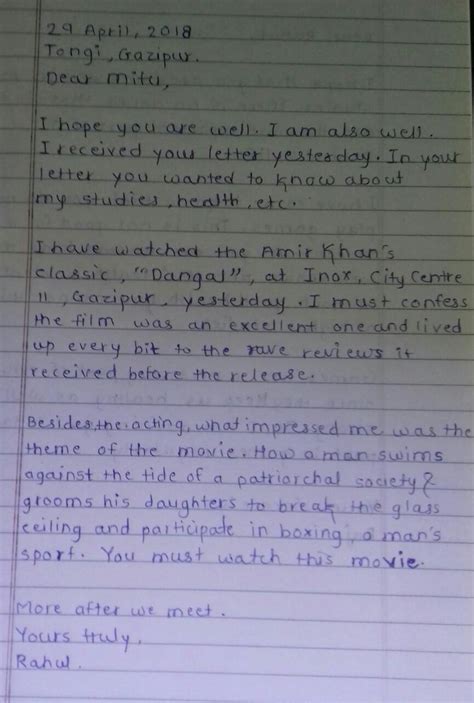 29 April, 2018
Tongi, Gazipur.
Dear mitu,
I hope you are well. I am also well.
I received your letter yesterday. In your
letter you wanted to know about
my studies, health, etc.
I have watched the Amir Khan's
classic, "Dangal", at Inox, City Centre
II, Gazipur, yesterday. I must confess
the film was an excellent one and lived
up every bit to the rave reviews it
received before the release.
Besides, the acting, what impressed me was the
theme of the movie. How a man swims
against the tide of a patriarchal society &
grooms his daughters to break the glass
ceiling and participate in boxing, a man's
sport. You must watch this movie.
More after we meet.
Yours truly,
Rahul.